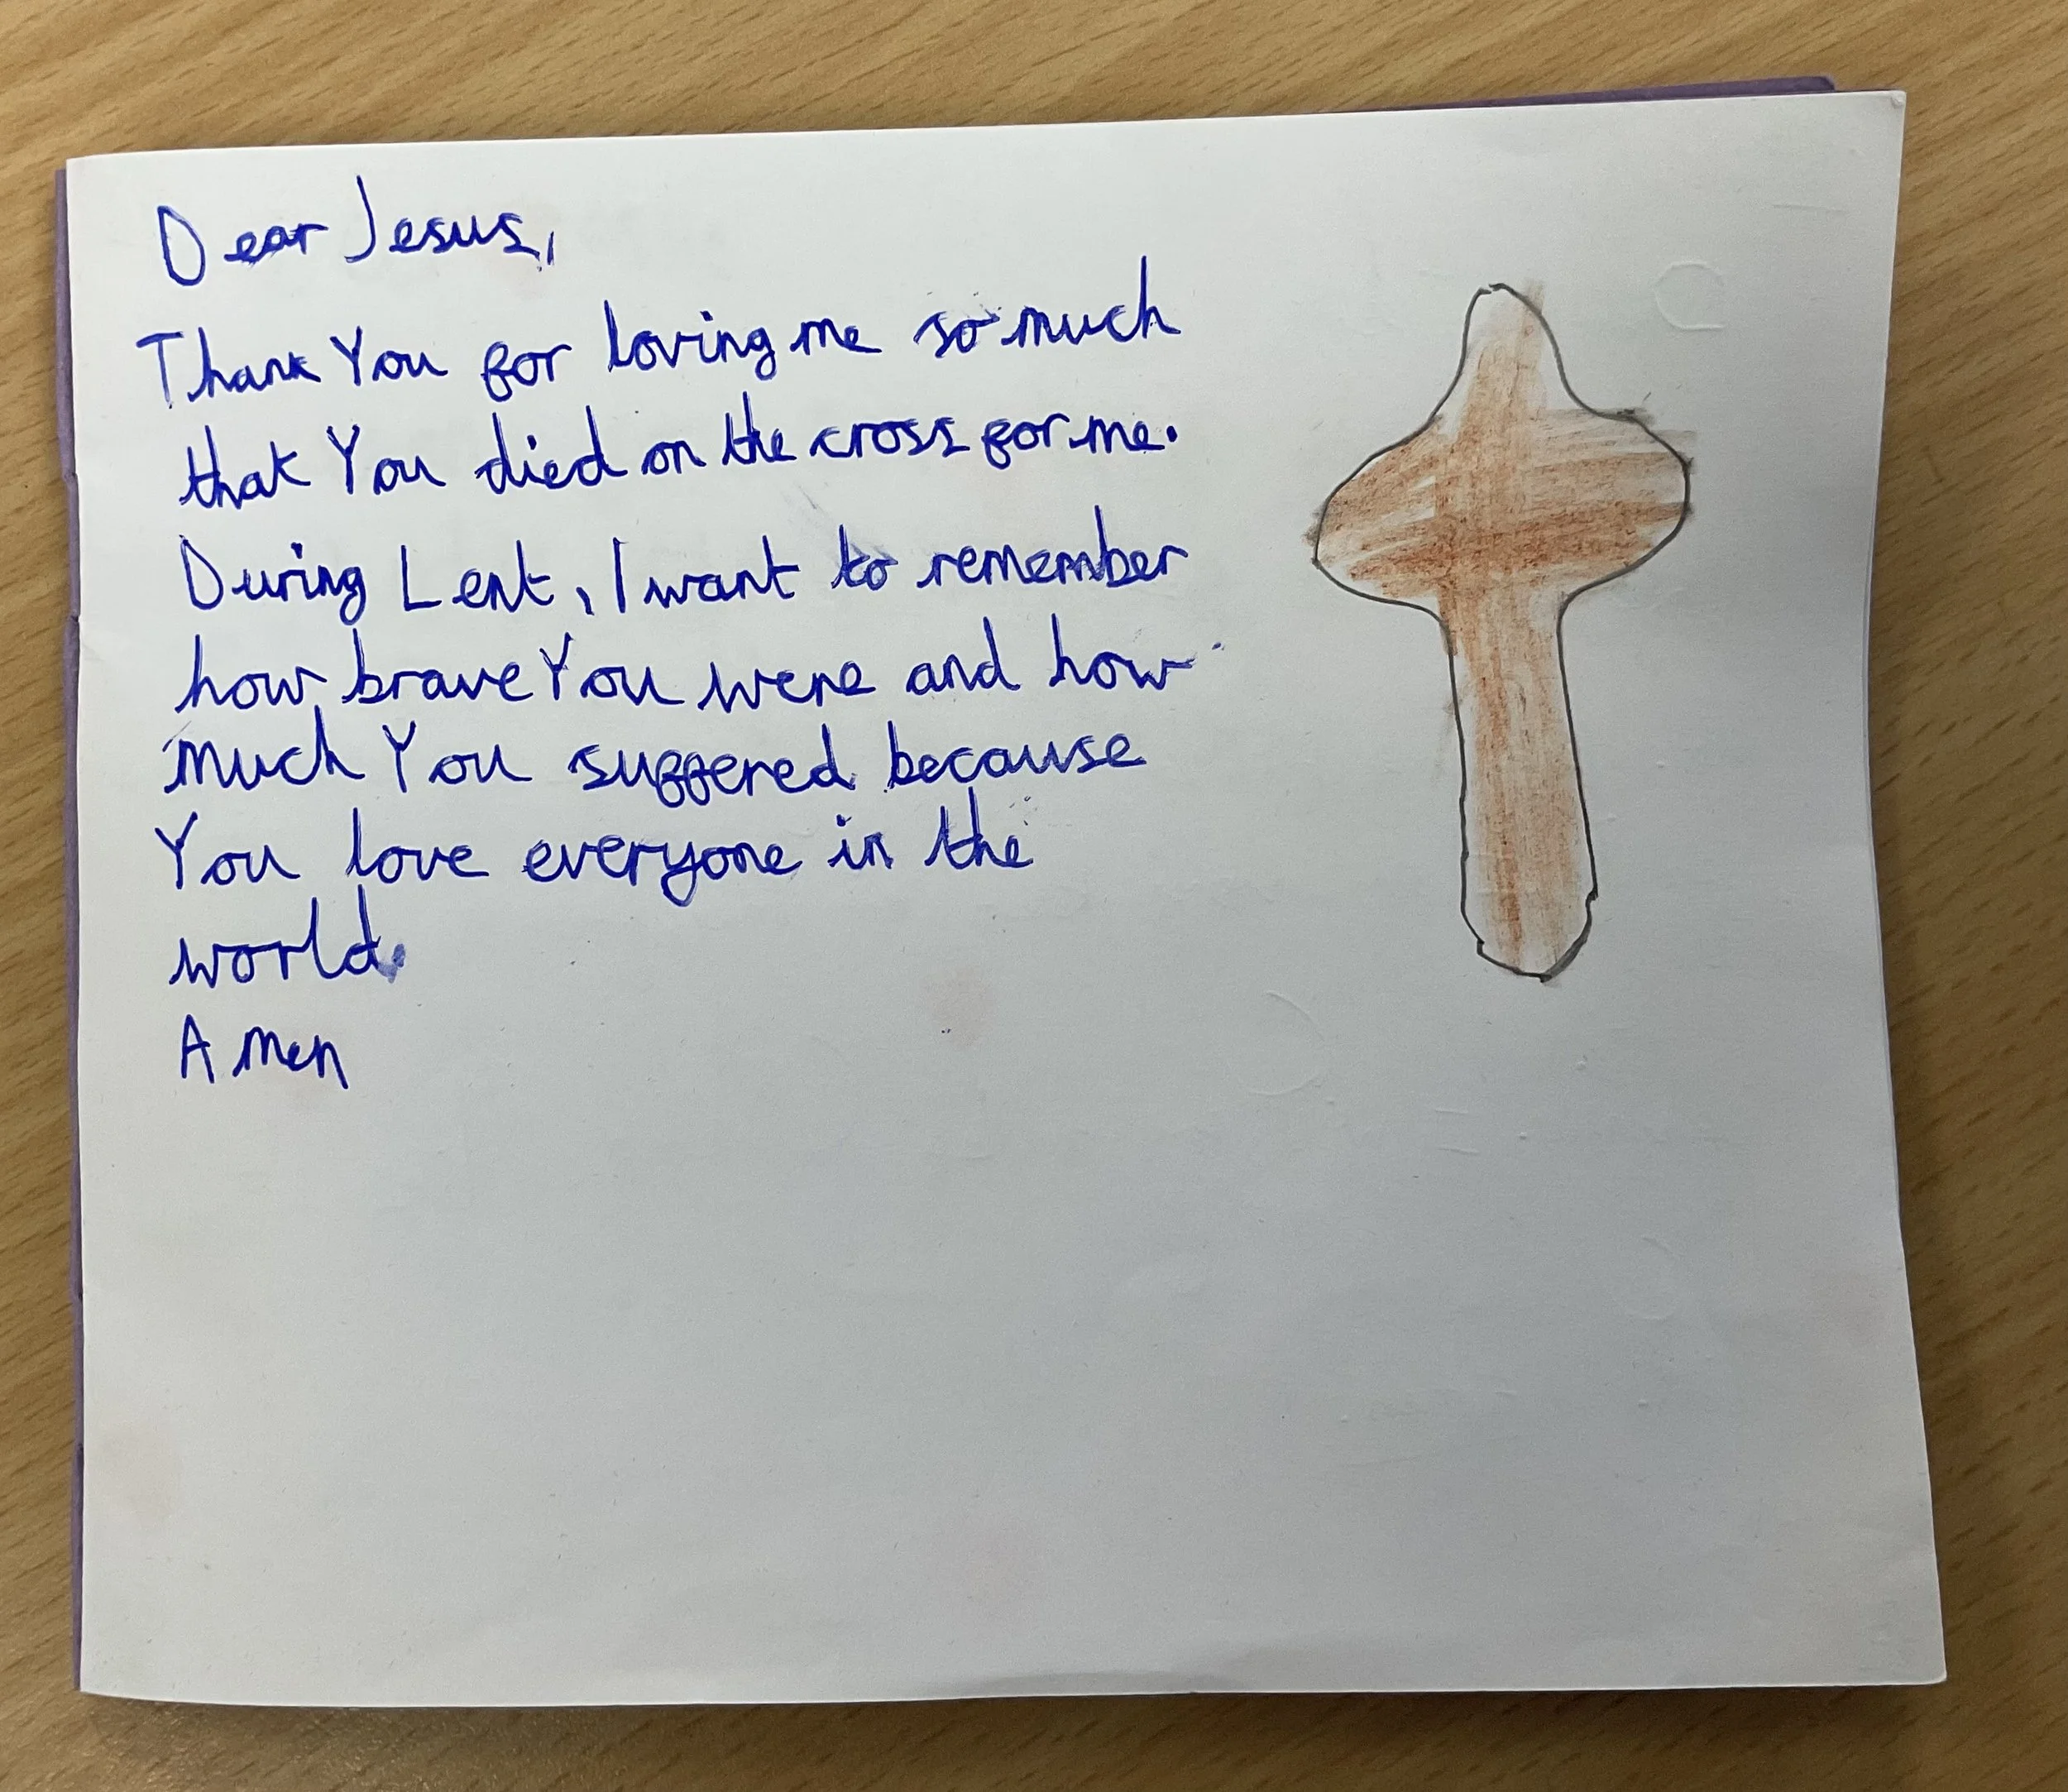 Dear Jesus,
Thank You for loving me so much
that You died on the cross for me.
During Lent, I want to remember
how brave You were and how
much You suffered because
You love everyone in the
world.
Amen